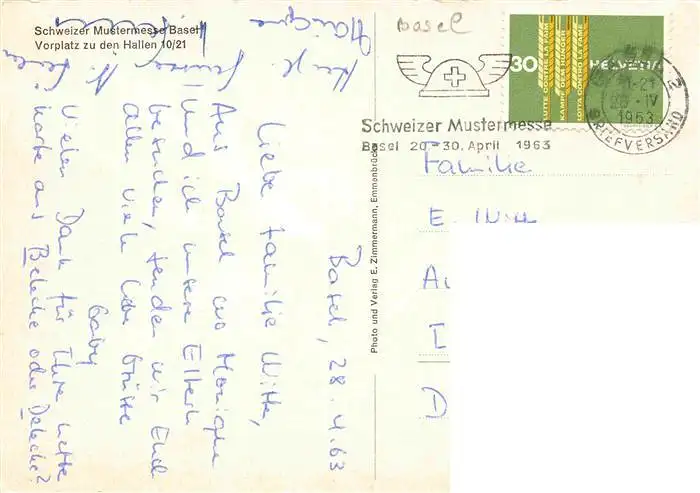 Schweizer Mustermesse Basel
Vorplatz zu den Hallen 10/21
Basel
30
HELVETIA
LOTTE CONTRE LA FAIM
KAMPF DEM HUNGER
LOTTA CONTRO LA FAME
1963
BRIEFVERSAND
Schweizer Mustermesse
Basel 20.-30. April 1963
Photo und Verlag E. Zimmermann, Emmenbrücke
Familie
E. Witte
Basel, 28.4.63
Liebe Familie Witte,
Aus Basel wo Monique
und ich unsere Eltern
besuchen, senden wir Euch
allen viele liebe Grüsse
Gaby
Vielen Dank für Ihre nette
Karte aus Belecke oder Delecke?
Monique